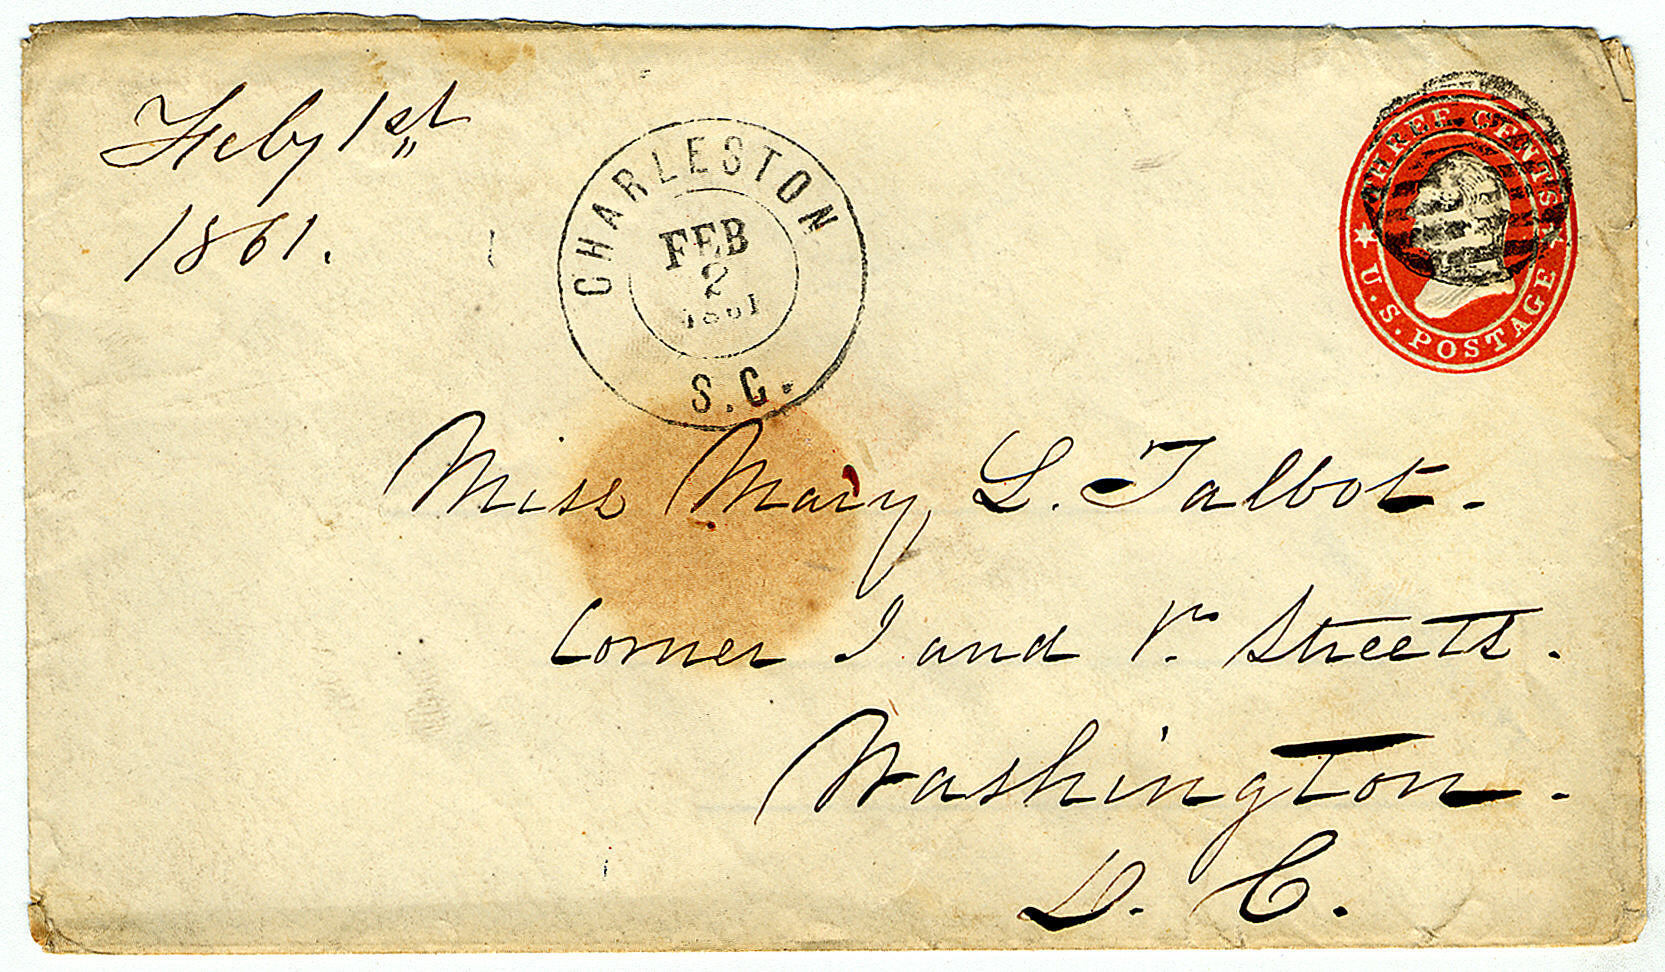 Feby 1st
1861.
CHARLESTON
FEB
2
1861
S.C.
THREE CENTS
U.S. POSTAGE
Miss Mary L. Talbot.
Corner I and Vr. Streets.
Washington.
D. C.